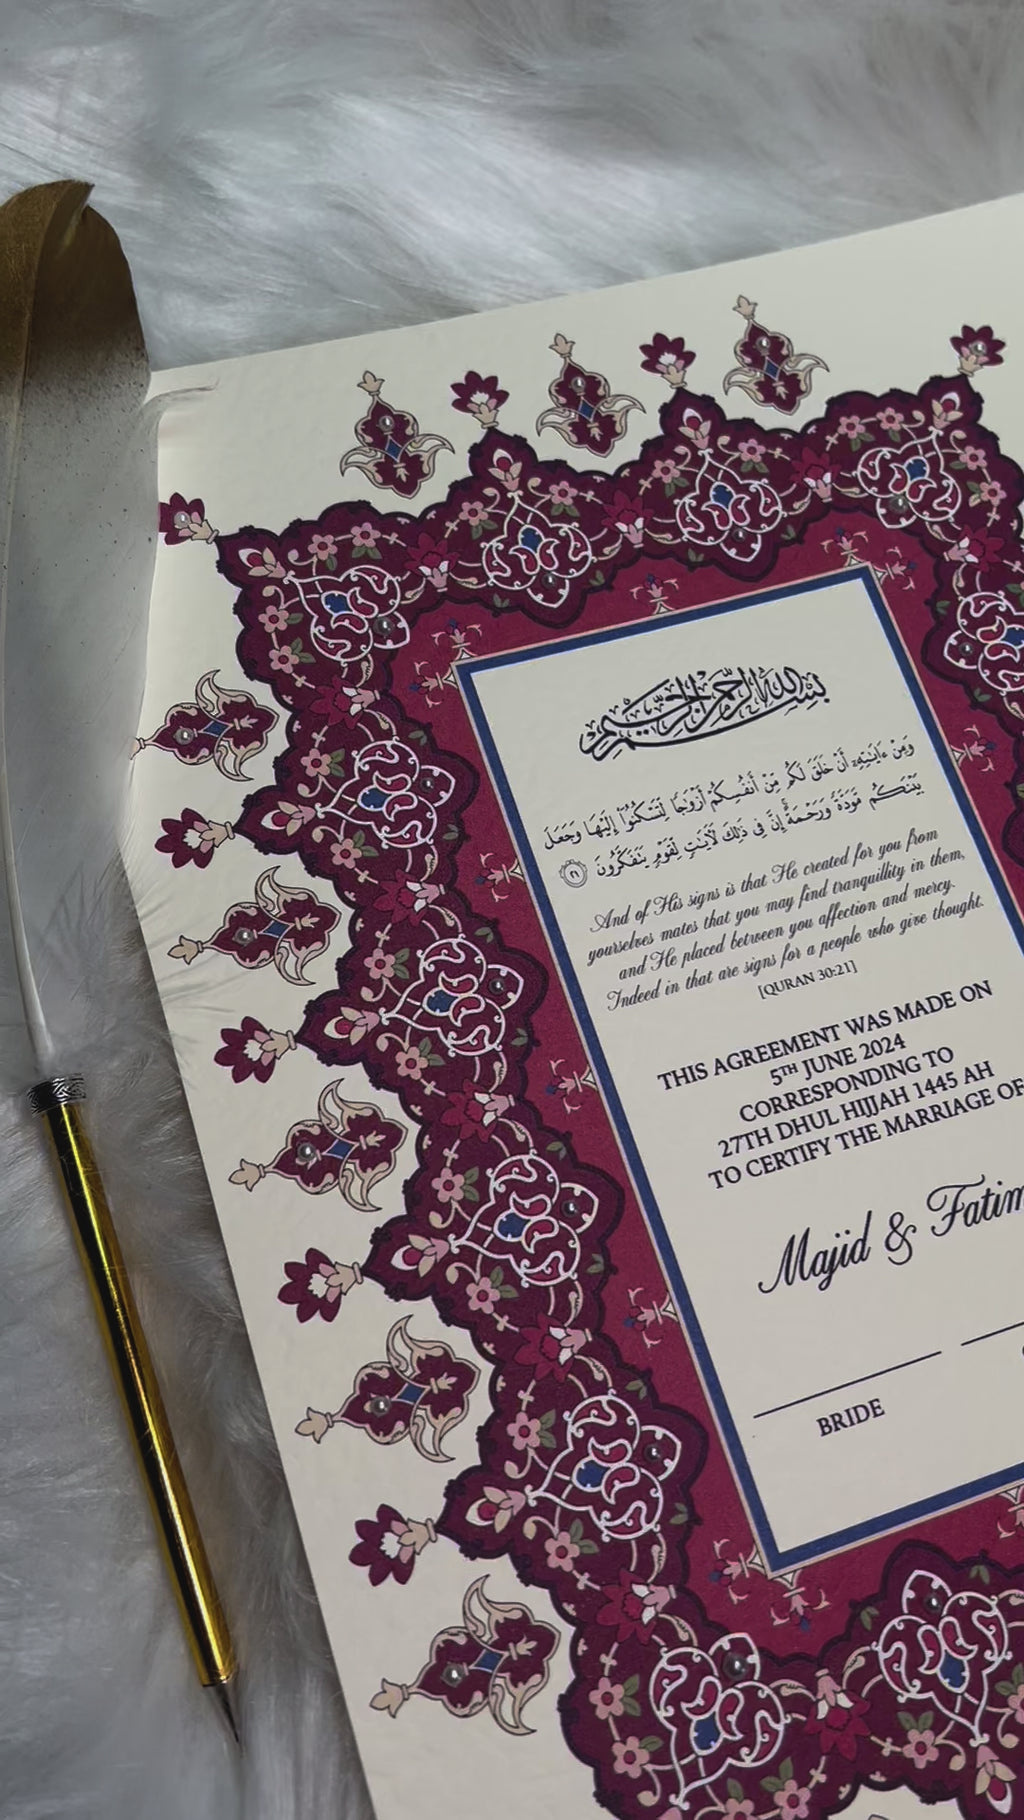 بسم الله الرحمن الرحيم
وَمِنْ ءَايَـٰتِهِۦٓ أَنْ خَلَقَ لَكُم مِّنْ أَنفُسِكُمْ أَزْوَٰجًا لِّتَسْكُنُوٓا۟ إِلَيْهَا وَجَعَلَ
بَيْنَكُم مَّوَدَّةً وَرَحْمَةً إِنَّ فِى ذَٰلِكَ لَـَٔايَـٰتٍ لِّقَوْمٍ يَتَفَكَّرُونَ ٢١
And of His signs is that He created for you from
yourselves mates that you may find tranquillity in them,
and He placed between you affection and mercy.
Indeed in that are signs for a people who give thought.
[QURAN 30:21]
THIS AGREEMENT WAS MADE ON
5TH JUNE 2024
CORRESPONDING TO
27TH DHUL HIJJAH 1445 AH
TO CERTIFY THE MARRIAGE OF
Majid & Fatim
BRIDE